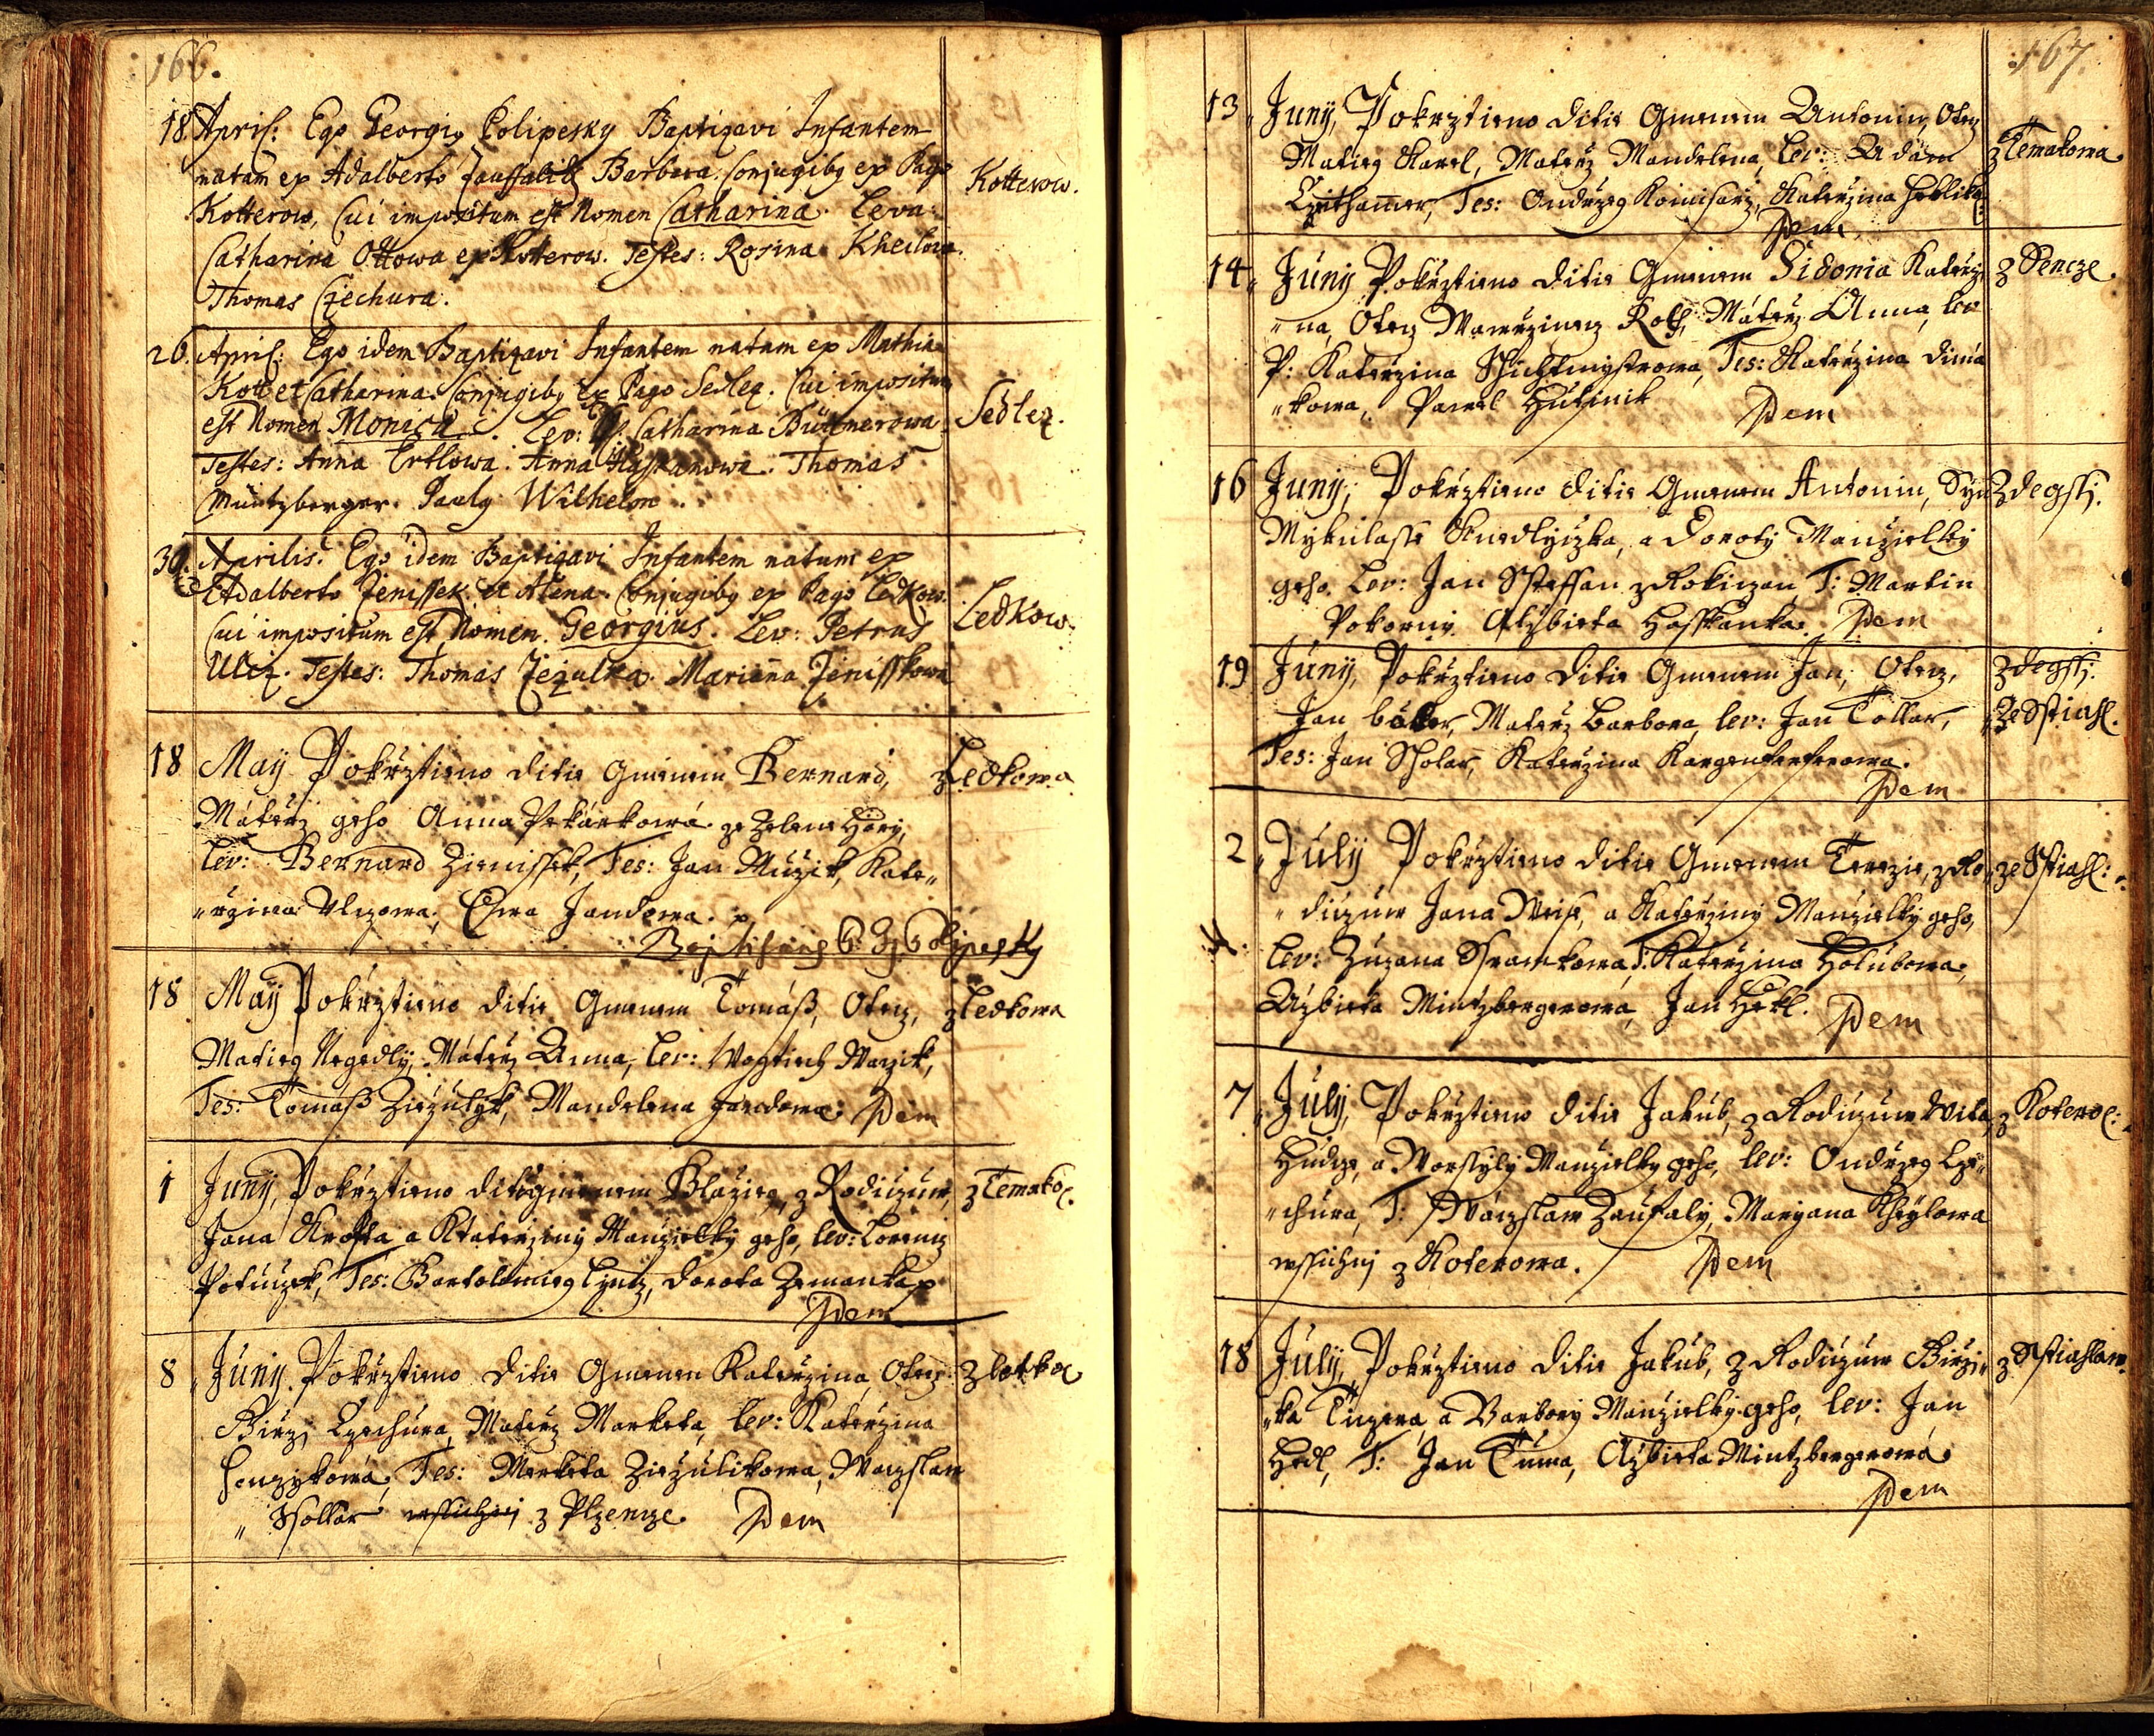 166.
18. April: Ego Georgig Polipesky Baptizavi Infantem
natam ex Adalberto Zauffalik Barbara conjugibg ex Pago
Kotterow, Cui impositum est Nomen Catharina. Leva:
Catharina Ottowa ex Kotterow. Testes: Rosina Kheilowa
Thomas Czechura.
Kotterow.
26. April: Ego idem Baptizavi Infantem natam ex Mathia
Kott et Catharina Conjugibg Ex Pago Sedlez. Cui impositum
est Nomen Monica. Lev: Catharina Büttnerowa
Testes: Anna Ertlowa. Anna Thomas
Müntzberger. Paulg Wilhelm.
Sedlez.
30. Aprilis. Ego idem Baptizavi Infantem natum ex
Adalberto Jenissek et Alena Conjugibg ex Pago Ledkow.
Cui impositum est Nomen Georgius. Lev: Petrus
Ulcz. Testes: Thomas Jezulka. Marianna Jenisskowa
Ledkow.
18 May Pokrztieno Ditie Gmenem Bernard, z Ledkowa
Máterz geho Anna Pekárkowá ze Zelene Hory,
Lev: Bernard Zienissek, Tes: Jan Muzik, Kate„
„rzina Vlczowa, Ewa Jandowa.
Baptisans G: Polipesky
18 May Pokrztieno Ditie Gmenem Tomáß, Otecz, z Ledkowa
Matieg Negedly, Máterz Anna, Lev: Wogtiech Waczik,
Tes: Tomáß Ziezulyk, Mandelena Jandowa. Idem
1 Juny, Pokrztieno Ditie gmenem Blazieg, z Rodiczuw, z Temakow.
Jana Krofta a Katerziny Manzielky geho, lev: Lorencz
Potuczek, Tes: Bartolomieg Czntz, Dorota Zemanka
Idem
8 „ Juny Pokrztieno Ditie Gmenem Katerzina, Otecz z Letkow
Girzj Czechura, Materz Marketa, lev: Katerzina
Honzykowá, Tes: Marketa Ziezulikowa, Waczslaw
„ Kollár wssichnj z Plzencze. Idem
167.
13 „ Juny, Pokrztieno Ditie Gmenem Antonin, Otecz
Matieg Karel, Materz Mandelena, Lev: Adám z Temakowa
Tes: Ondrzeg Komisarz, Katerzina
Idem
14 „ Juny Pokrztieno Ditie Gmenem Sidonia Katerzi„ z Pencze.
„na, Otecz Wawrzinecz Roth, Máterz Anna, lev
P: Katerzina Schichtmystrowa, Tes: Katerzina Dimá
„kowa, Pawel Hutinik Idem
16 Juny, Pokrztieno Ditie Gmenem Antonin, Syn Zdegssj.
Mykulasse Knedlyczka, a Doroty Manzielky
geho. Lev: Jan Ssteffan z Rokiczan, T: Martin
Pokorny Alzbieta Hasskanka. Idem
19 Juny, Pokrztieno Ditie Gmenem Jan, Otecz, Zdegssj.
Jan Materz Barbora, lev: Jan Tollar, Ze Sstiahl.
Tes: Jan Scholar, Katerzina
Idem
2 „ July Pokrztieno Ditie Gmenem Terezie, z Ro„ ze Sstiahl:
„diczuw Jana Weis, a Katerziny Manzielky geho,
Lev: Zuzana Sramkowa, T: Katerzina Holubowa,
Alzbieta Mintzbergerowá, Jan Hekl. Idem
7 „ July, Pokrztieno Ditie Jakub, z Rodiczuw Wita, z Koterow:
Hudcze, a Worssyly Manzielky geho, lev: Ondrzeg Cze„
„chura, T: Wáczslaw Zaufaly, Maryana Kheylowa
wssichnj z Koterowa. Idem
18 July, Pokrztieno Ditie Jakub, z Rodiczuw Girzi„ z Sstiahlaw.
„ka a Barbory Manzielky geho, lev: Jan
Hekl, T: Jan Tuma, Alzbieta Mintzbergerowá
Idem